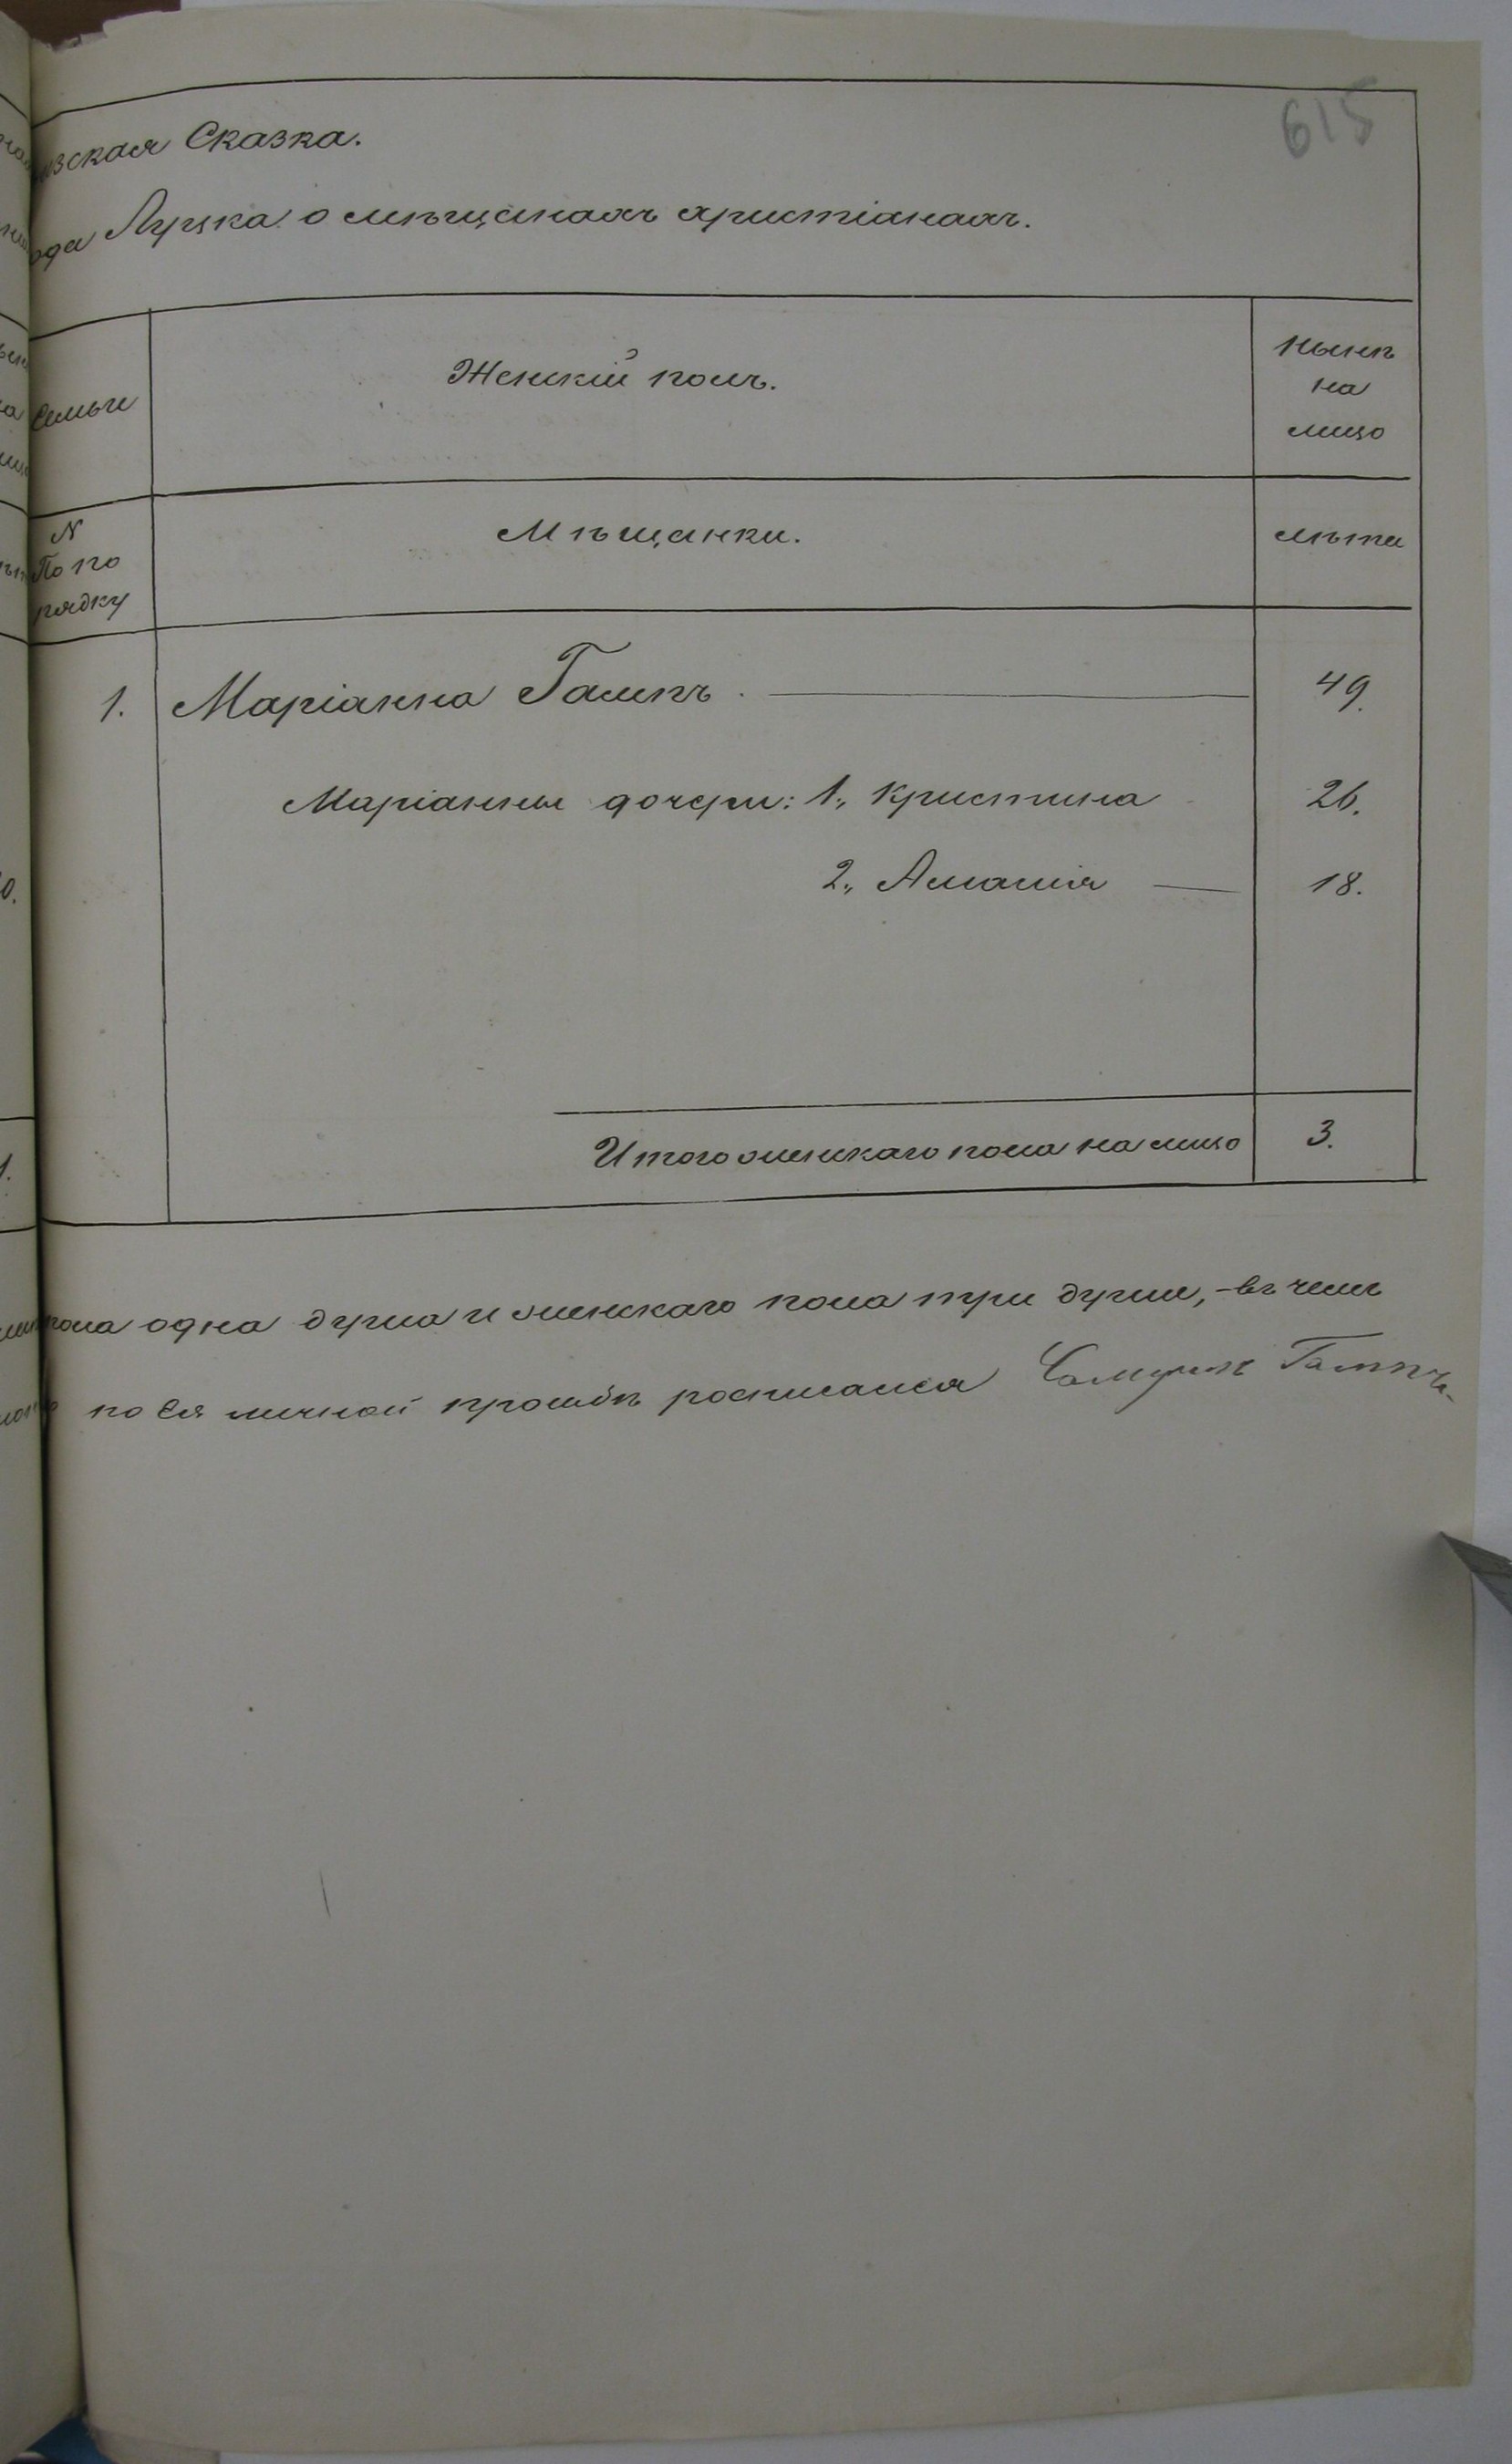 615
изская Сказка.
ода Луцка о мѣщанахъ христіанахъ.
Семьи
Женскій полъ.
Нынѣ
на
лицо
N
По по
рядку
Мѣщанки.
лѣта
1. Маріанна Гампъ. 49.
Маріанны дочери: 1,, Кристина 26.
2,, Амалія 18.
Итого женскаго пола на лицо 3.
пола одна душа и женскаго пола три души, – въ чемъ
по Ея личной прозьбѣ росписался Самуилъ Гампъ